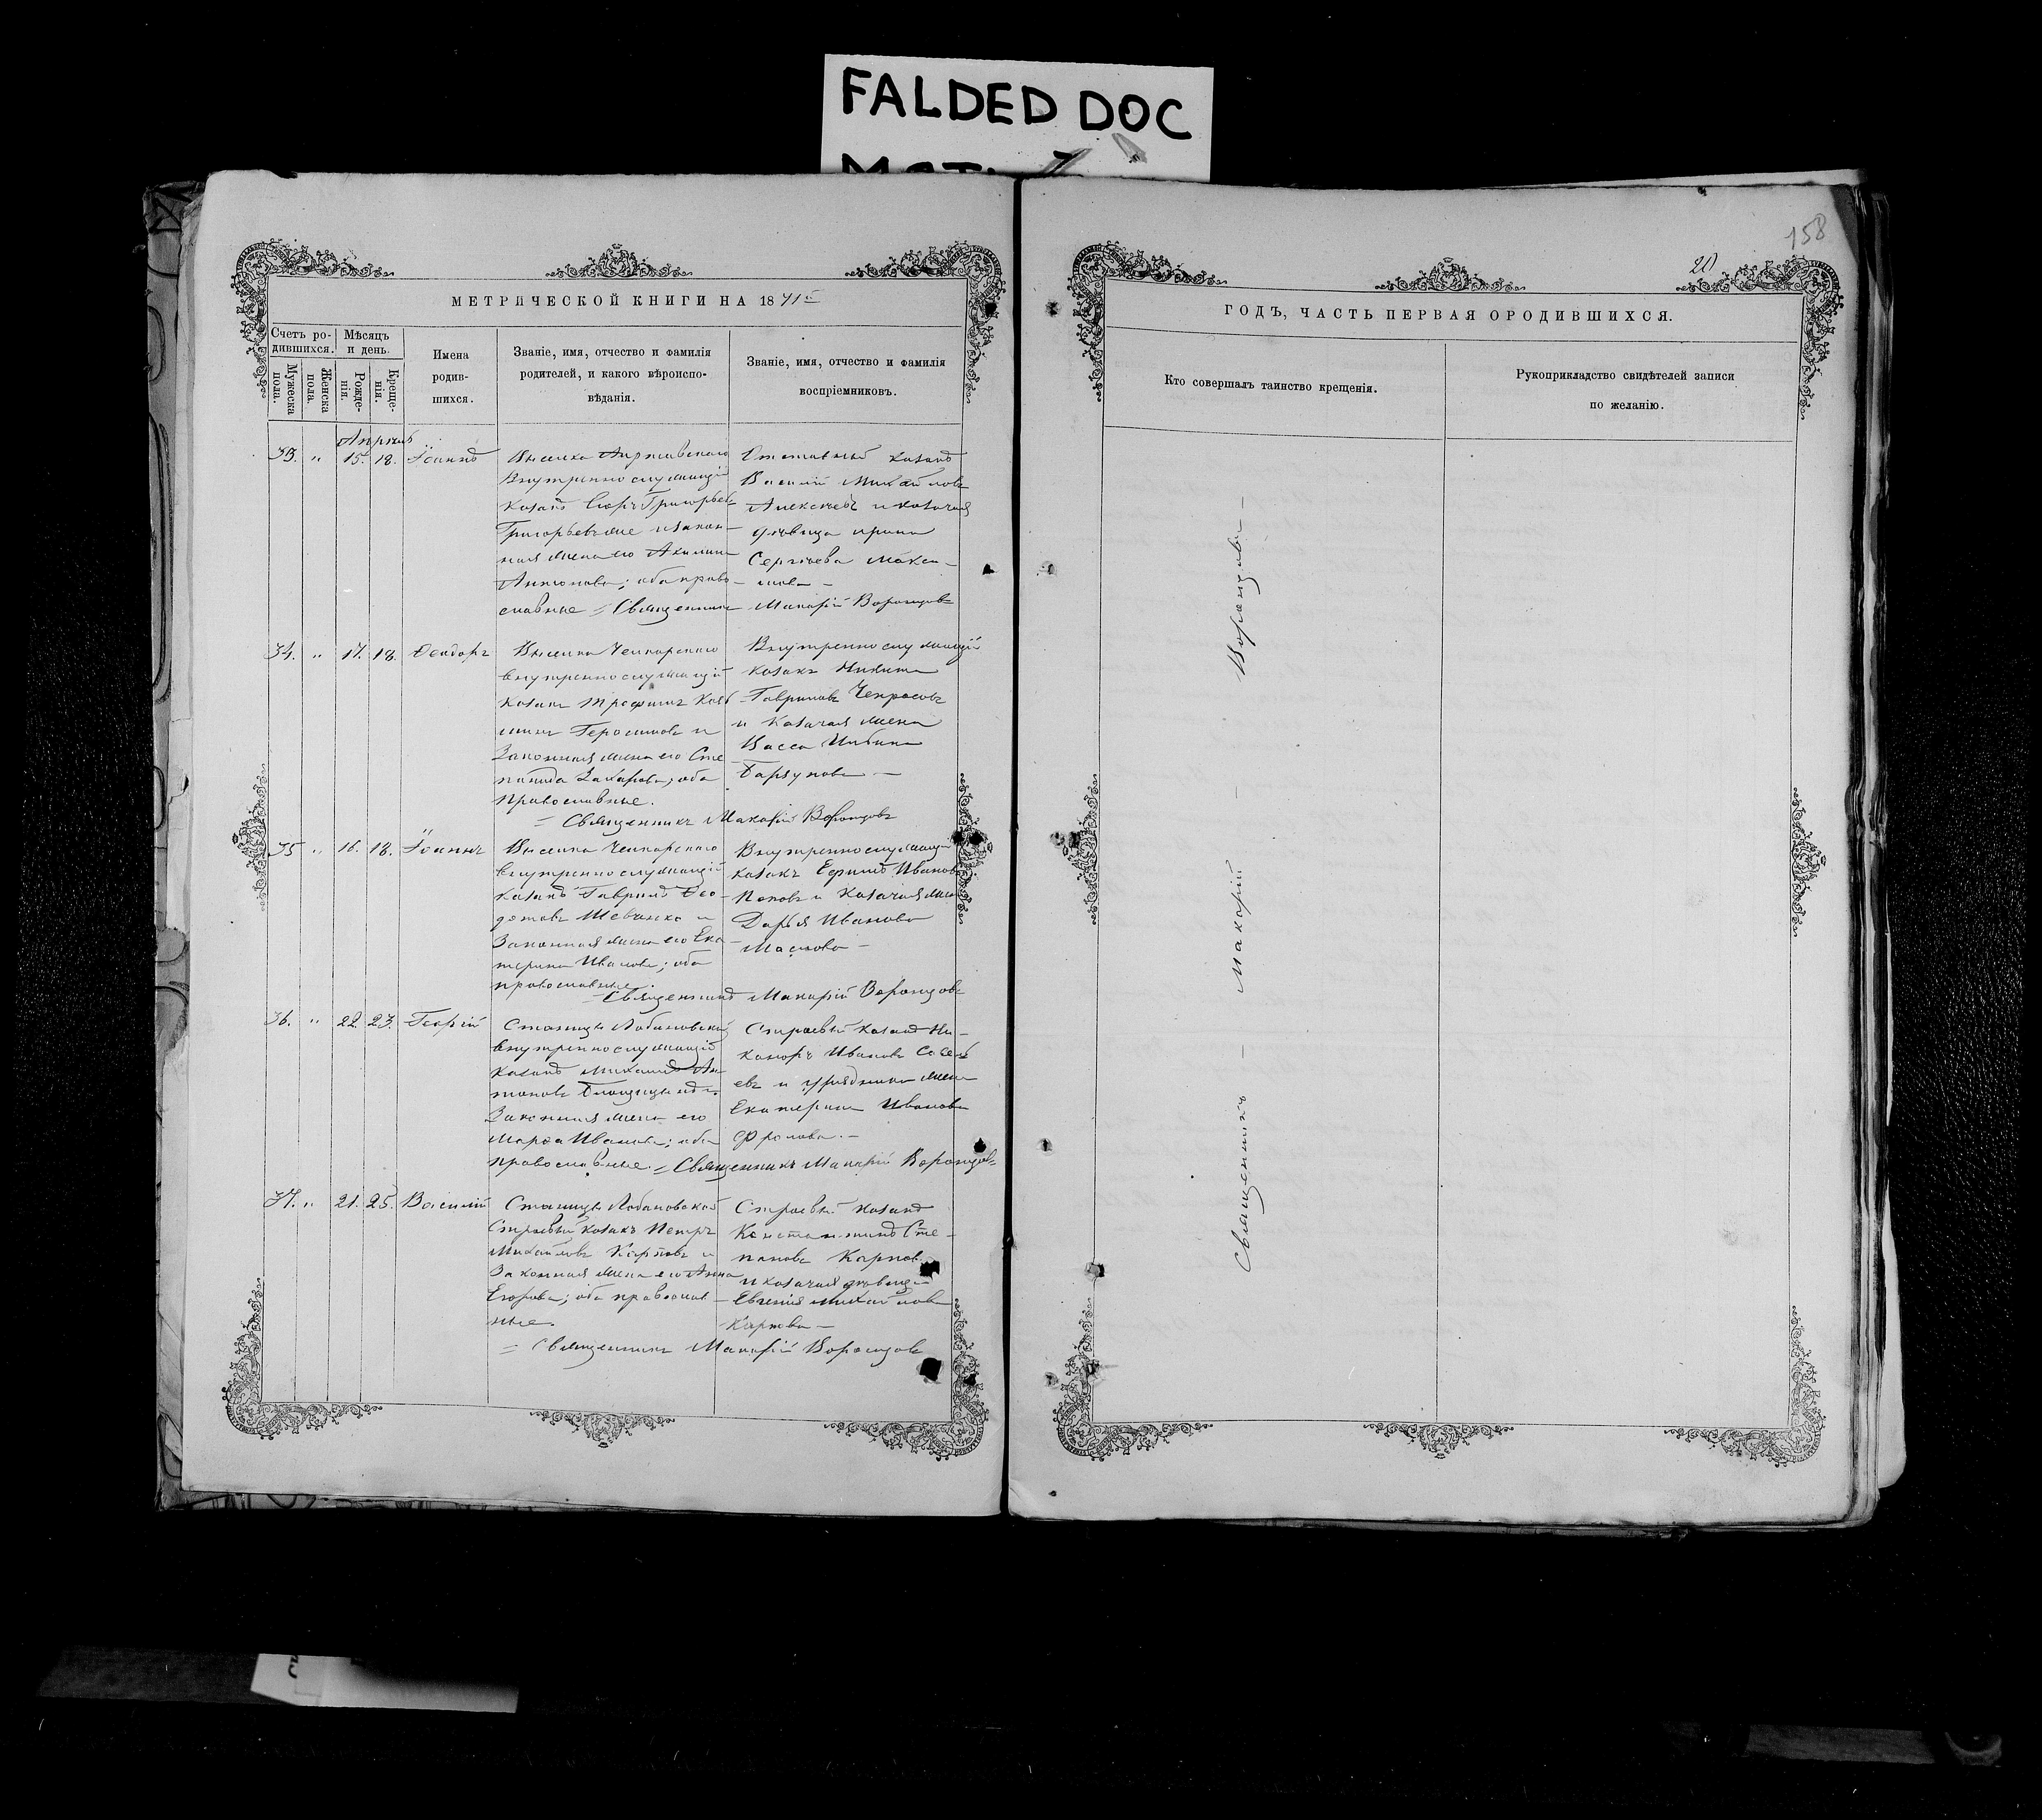 FALDED DOC
158
20
МЕТРИЧЕСКОЙ КНИГИ НА 1871й
Счетъ ро-
дившихся.
Мѣсяцъ
и день.
Мужеска
пола.
Женска
пола.
Рожде-
нія.
Креще-
нія.
Имена
родив-
шихся.
Званіе, имя, отчество и фамилія
родителей, и какого вѣроиспо-
вѣданія.
Званіе, имя, отчество и фамилія
воспріемниковъ.
Апрѣль
33. " 15. 18. Іоаннъ
Выселка
Внутренно служащій
козакъ Григорьев
Григорьевъ и закон-
ная жена его Акилина
Антонова; оба право-
славные = Священникъ Макарій Воронцовъ
Отставный козакъ
Василій Михайловъ
Алексѣевъ и козачья
дѣвица Ирина
Сергѣева Макси-
мова –
34. " 17. 18. Ѳеодоръ
Выселка Чемкарскаго
внутреннослужащій
козакъ Трофимъ
Герасимовъ и
Законная жена его Сте
панида Захарова; оба
православные.
= Священникъ Макарій Воронцовъ
Внутреннослужащій
козакъ Никита
Гавриловъ Чепрасовъ
и козачья жена
Васса
35 " 16. 18. Іоаннъ
Выселка Чемкарскаго
внутреннослужащій
козакъ Гавріилъ Ѳео-
дотовъ Шевченко и
Законная жена его Ека-
терина Иванова; оба
православные.
= Священникъ Макарій Воронцовъ
Внутреннослужащій
козакъ Ефимъ Ивановъ
Поповъ и козачья жена
Дарья Иванова
Маслова –
36. " 22. 23. Георгій
Станицы Лобановской
внутреннослужащій
козакъ Михаилъ Ан
тоновъ
Законная жена его
Марѳа Иванова; оба
православные. = Священникъ Макарій Воронцовъ
Строевый козакъ Ни-
каноръ Ивановъ Савель
евъ и урядника жена
Екатерина Иванова
Фролова. –
37. " 21. 25. Василій
Станицы Лобановской
Строевый козакъ Петръ
Михайловъ Карповъ и
Законная жена его Анна
Егорова; оба православ-
ные.
= Священникъ Макарій Воронцовъ
Строевый козакъ
Константинъ Сте-
пановъ Карповъ
и козачья дѣвица
Евгенія Михайлова
Карпова –
ГОДЪ, ЧАСТЬ ПЕРВАЯ ОРОДИВШИХСЯ.
Кто совершалъ таинство крещенія.
Рукоприкладство свидѣтелей записи
по желанію.
Священникъ – Макарій – Воронцовъ –